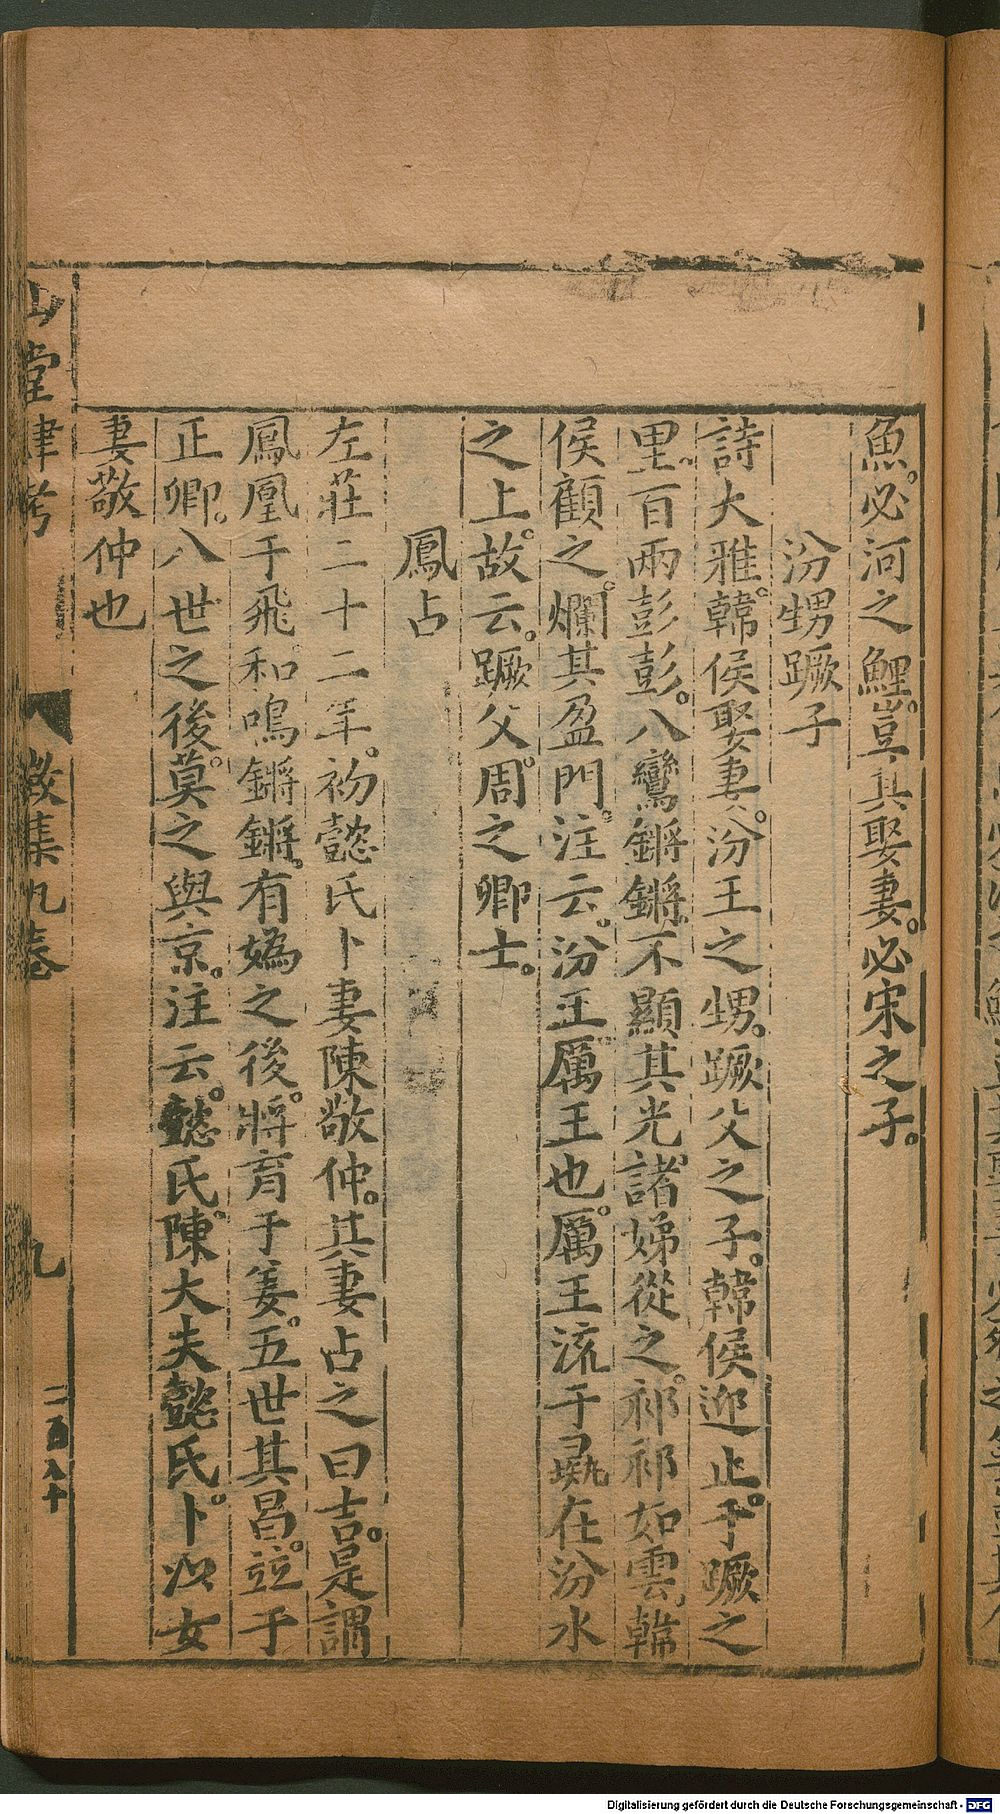 魚。必河之鯉。豈其娶妻。必宋之子。
汾甥蹶子
詩大雅。韓侯娶妻。汾王之甥。蹶父之子。韓侯迎止。于蹶之
里。百兩彭彭。八鸞鏘鏘。不顯其光。諸娣從之。祁祁如雲。韓
侯顧之。爛其盈門。注云。汾王厲王也。厲王流于彘在汾水
之上。故云。蹶父。周之卿士。
鳳占
左莊二十二年。初懿氏卜妻陳敬仲。其妻占之曰吉。是謂
鳳凰于飛和鳴鏘鏘。有媯之後。將育于姜。五世其昌。竝于
正卿。八世之後。莫之與京。注云。懿氏。陳大夫懿氏。卜以女
妻敬仲也
山堂肆考
徵集九卷
九
二百八十
Digitalisierung gefördert durch die Deutsche Forschungsgemeinschaft - DFG